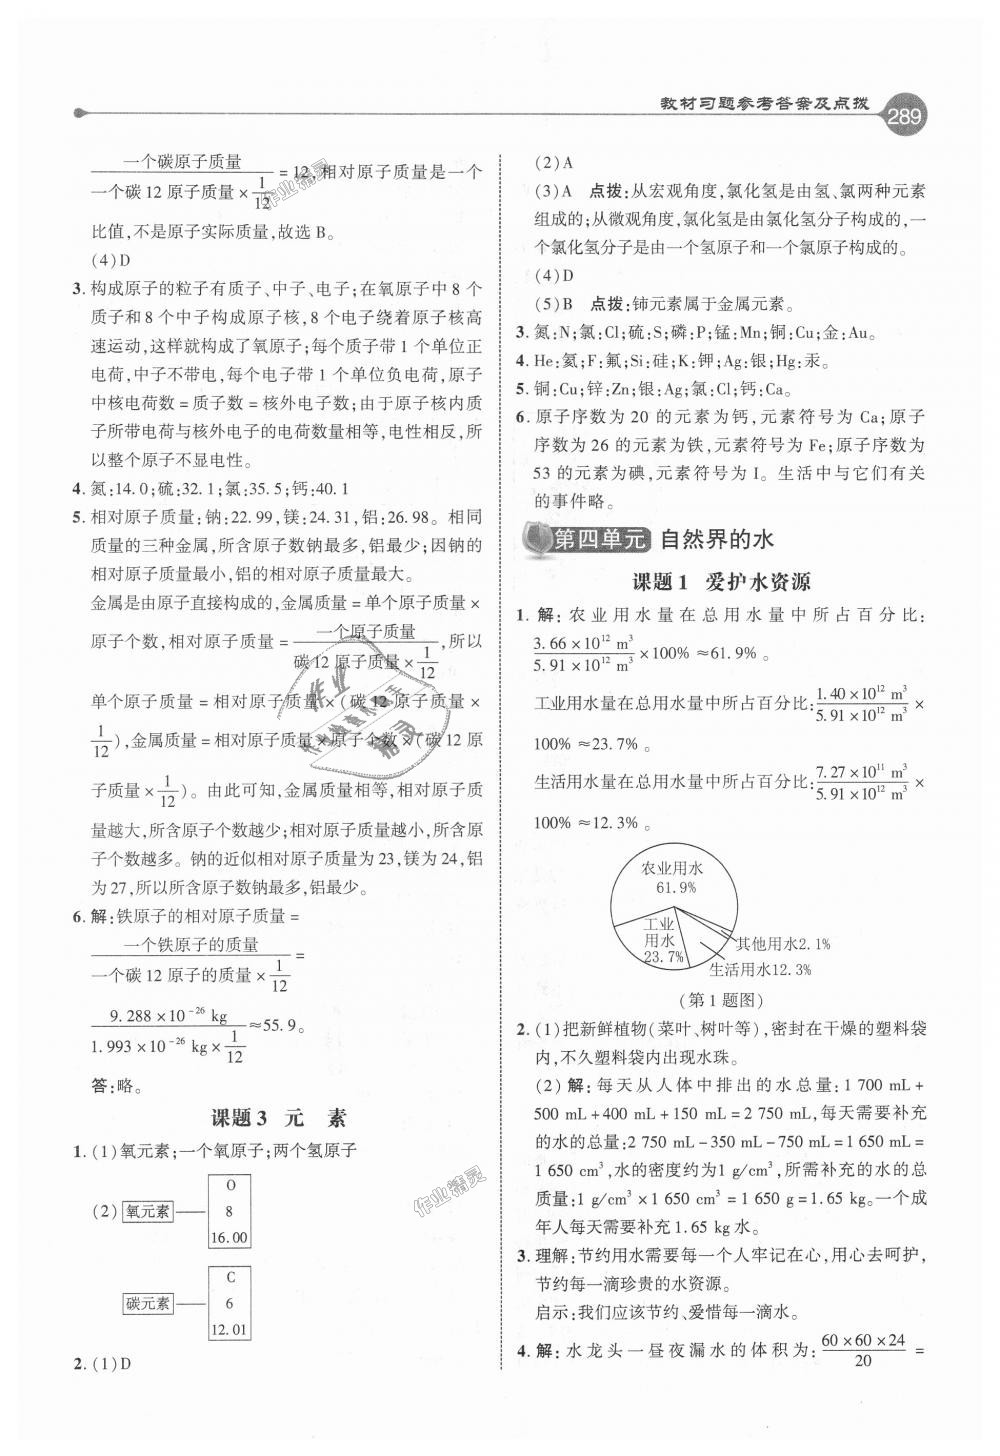 教材习题参考答案及点拨
289
一个碳原子质量/一个碳12原子质量×1/12=12,相对原子质量是一个
比值,不是原子实际质量,故选B。
(4)D
3.构成原子的粒子有质子、中子、电子;在氧原子中8个
质子和8个中子构成原子核,8个电子绕着原子核高
速运动,这样就构成了氧原子;每个质子带1个单位正
电荷,中子不带电,每个电子带1个单位负电荷,原子
中核电荷数=质子数=核外电子数;由于原子核内质
子所带电荷与核外电子的电荷数量相等,电性相反,所
以整个原子不显电性。
4.氮:14.0;硫:32.1;氯:35.5;钙:40.1
5.相对原子质量:钠:22.99,镁:24.31,铝:26.98。相同
质量的三种金属,所含原子数钠最多,铝最少;因钠的
相对原子质量最小,铝的相对原子质量最大。
金属是由原子直接构成的,金属质量=单个原子质量×
原子个数,相对原子质量=一个原子质量/碳12原子质量×1/12,所以
单个原子质量=相对原子质量×(碳12原子质量×
1/12),金属质量=相对原子质量×原子个数×(碳12原
子质量×1/12)。由此可知,金属质量相等,相对原子质
量越大,所含原子个数越少;相对原子质量越小,所含原
子个数越多。钠的近似相对原子质量为23,镁为24,铝
为27,所以所含原子数钠最多,铝最少。
6.解:铁原子的相对原子质量=
一个铁原子的质量/一个碳12原子的质量×1/12=
9.288×10⁻²⁶ kg/1.993×10⁻²⁶ kg×1/12≈55.9。
答:略。
课题3 元 素
1.(1)氧元素;一个氧原子;两个氢原子
(2)氧元素
O
8
16.00
碳元素
C
6
12.01
2.(1)D
(2)A
(3)A 点拨:从宏观角度,氯化氢是由氢、氯两种元素
组成的;从微观角度,氯化氢是由氯化氢分子构成的,一
个氯化氢分子是由一个氢原子和一个氯原子构成的。
(4)D
(5)B 点拨:铈元素属于金属元素。
3.氮:N;氯:Cl;硫:S;磷:P;锰:Mn;铜:Cu;金:Au。
4.He:氦;F:氟;Si:硅;K:钾;Ag:银;Hg:汞。
5.铜:Cu;锌:Zn;银:Ag;氯:Cl;钙:Ca。
6.原子序数为20的元素为钙,元素符号为Ca;原子
序数为26的元素为铁,元素符号为Fe;原子序数为
53的元素为碘,元素符号为I。生活中与它们有关
的事件略。
第四单元 自然界的水
课题1 爱护水资源
1.解:农业用水量在总用水量中所占百分比:
3.66×10¹² m³/5.91×10¹² m³×100%≈61.9%。
工业用水量在总用水量中所占百分比:1.40×10¹² m³/5.91×10¹² m³×
100%≈23.7%。
生活用水量在总用水量中所占百分比:7.27×10¹¹ m³/5.91×10¹² m³×
100%≈12.3%。
农业用水
61.9%
工业
用水
23.7%
其他用水2.1%
生活用水12.3%
(第1题图)
2.(1)把新鲜植物(菜叶、树叶等),密封在干燥的塑料袋
内,不久塑料袋内出现水珠。
(2)解:每天从人体中排出的水总量:1 700 mL+
500 mL+400 mL+150 mL=2 750 mL,每天需要补充
的水的总量:2 750 mL-350 mL-750 mL=1 650 mL=
1 650 cm³,水的密度约为1 g/cm³,所需补充的水的总
质量:1 g/cm³×1 650 cm³=1 650 g=1.65 kg。一个成
年人每天需要补充1.65 kg水。
3.理解:节约用水需要每一个人牢记在心,用心去呵护,
节约每一滴珍贵的水资源。
启示:我们应该节约、爱惜每一滴水。
4.解:水龙头一昼夜漏水的体积为:60×60×24/20=
作业精灵
作业精灵
作业
作业检查小助手
精灵